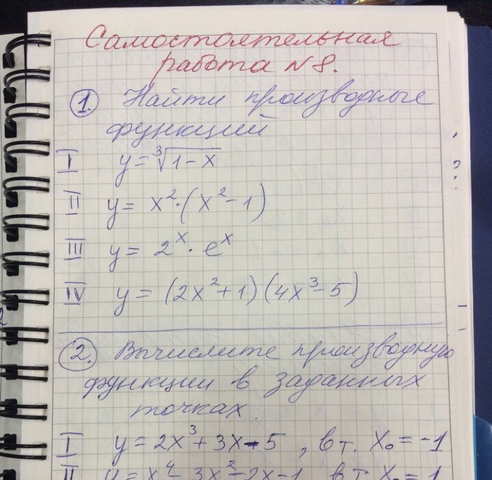 Самостоятельная
работа N 8.
① Найти производные
функций
I y = ∛(1-x)
II y = x²·(x²-1)
III y = 2ˣ·eˣ
IV y = (2x²+1)(4x³-5)
②. Вычислите производную
функции в заданных
точках.
I y = 2x³+3x-5, в т. x₀ = -1
II y = x⁴-3x²-2x-1 в т. x₀ = 1